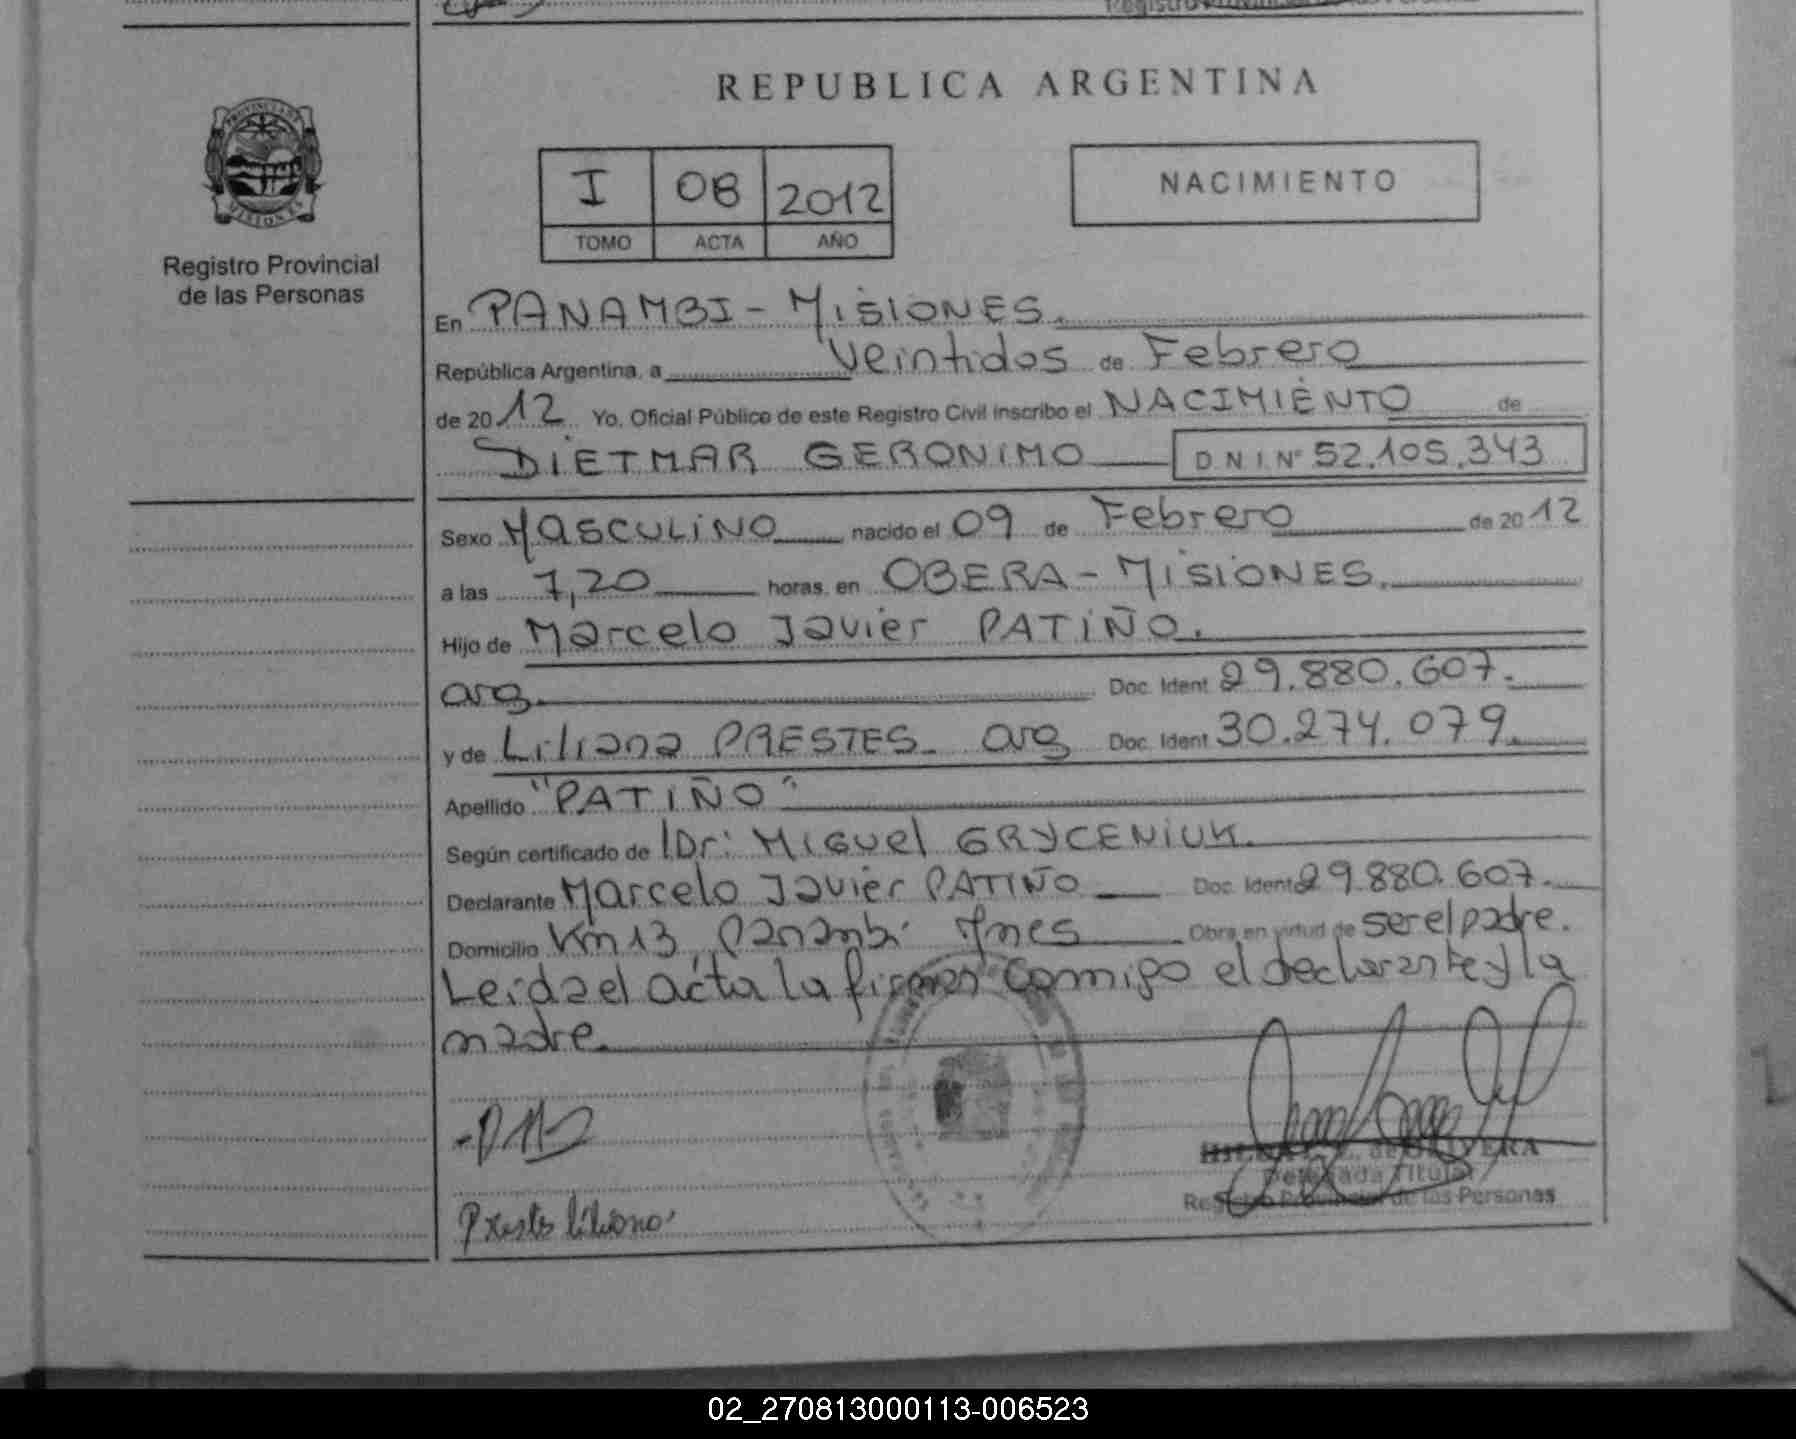 REPUBLICA ARGENTINA
PROVINCIA DE
MISIONES
Registro Provincial
de las Personas
I 08 2012
TOMO ACTA AÑO
NACIMIENTO
En PANAMBI - MISIONES.
República Argentina, a veintidos de Febrero
de 2012 Yo, Oficial Público de este Registro Civil inscribo el NACIMIENTO de
DIETMAR GERONIMO D.N.I. Nº 52.105.343
Sexo MASCULINO nacido el 09 de Febrero de 2012
a las 7,20 horas, en OBERA - MISIONES.
Hijo de Marcelo Javier PATIÑO.
arg. Doc. Ident 29.880.607.
y de Liliana PRESTES - arg Doc. Ident 30.274.079.
Apellido "PATIÑO"
Según certificado de Dr: MIGUEL GRYCENIUK.
Declarante Marcelo Javier PATIÑO Doc. Ident 29.880.607.
Domicilio Km 13, Panambi Mnes Obra en virtud de ser el padre.
Leida el acta la firman conmigo el declarante y la
madre.
Prestes Liliana
de OLIVERA
Delegada Titular
Registro Provincial de las Personas
02_270813000113-006523